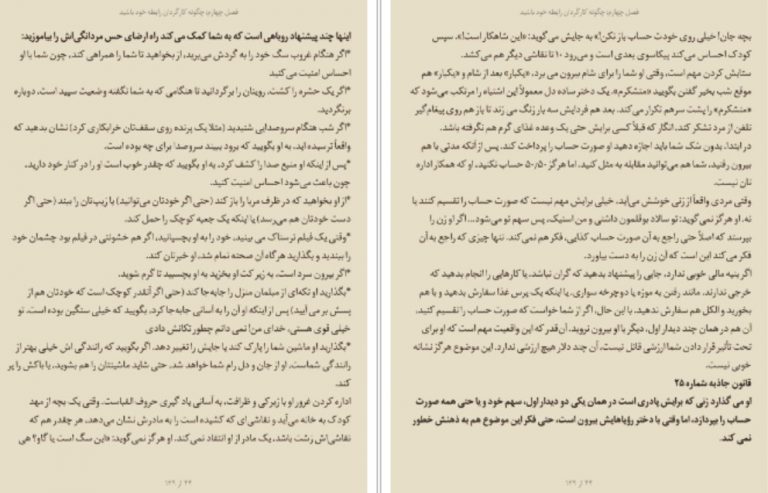 فصل چهارم: چگونه کارگردان رابطه خود باشید
اینها چند پیشنهاد روباهی است که به شما کمک می‌کند راه ارضای حس مردانگی‌اش را بیاموزید:
*اگر هنگام غروب سگ خود را به گردش می‌برید، از بخواهید تا شما را همراهی کند، چون شما با او
احساس امنیت می‌کنید
*اگر یک حشره را کشت، رویتان را برگردانید تا هنگامی که به شما نگفته وضعیت سپید است، دوباره
برنگردید.
*اگر شب هنگام سروصدایی شنیدید [مثلا یک پرنده روی سقف‌تان خرابکاری کرد] نشان بدهید که
واقعاً ترسیده اید. به او بگویید که برود ببیند سروصدا برای چه بوده است.
*پس از اینکه او منبع صدا را کشف کرد، به او بگویید که چقدر خوب است او را در کنار خود دارید،
چون باعث می‌شود احساس امنیت کنید.
*از او بخواهید که در ظرف مربا را باز کند (حتی اگر خودتان می‌توانید) یا زیپ‌تان را ببند (حتی اگر
دست خودتان هم می‌رسد) یا اینکه یک جعبه کوچک را حمل کند.
*وقتی یک فیلم ترسناک می بینید، خود را به او بچسبانید، اگر هم خشونتی در فیلم بود چشمان خود
را ببندید و بگذارید هرگاه آن صحنه تمام شد، او خبرتان کند.
*اگر بیرون سرد است، به زیر کت او بخزید به او بچسبید تا گرم شوید.
*بگذارید او تکه‌ای از مبلمان منزل را جابه‌جا کند (حتی اگر آنقدر کوچک است که خودتان هم از
پسش بر می آیید) پس از اینکه او آن را به آسانی جابه‌جا کرد، بگویید که خیلی سنگین بوده است. تو
خیلی قوی هستی، خدای من! نمی دانم چطور تکانش دادی
*بگذارید او ماشین شما را پارک کند یا جایش را تغییر دهد. اگر بگویید که رانندگی اش خیلی بهتر از
رانندگی شماست، او از جان و دل رام شما خواهد شد. حتی شاید ماشینتان را هم بشوید، یا باکش را پر
کند.
اداره کردن غرور او با زیرکی و ظرافت، به آسانی یاد گیری حروف الفباست. وقتی یک بچه از مهد
کودک به خانه می‌آید و نقاشی‌ای که کشیده است را به مادرش نشان می‌دهد، هر چقدر هم که
نقاشی‌اش زشت باشد، یک مادر از او انتقاد نمی‌کند. او هرگز نمی‌گوید: «این سگ است یا گاو؟ هی
۴۴ از ۱۲۹
فصل چهارم: چگونه کارگردان رابطه خود باشید
بچه جان! خیلی روی خودت حساب باز نکن!» به جایش می‌گوید: «این شاهکار است!»، سپس
کودک احساس می‌کند پیکاسوی بعدی است و می‌رود ۱۰ تا نقاشی دیگر هم می‌کشد.
ستایش کردن مهم است، وقتی او شما را برای شام بیرون می برد، «یکبار» بعد از شام و «یکبار» هم
موقع شب بخیر گفتن بگویید «متشکرم». یک دختر ساده دل معمولاً این اشتباه را مرتکب می‌شود که
«متشکرم» را پشت سرهم تکرار می‌کند. بعد هم فردایش سه بار زنگ می زند تا باز هم روی پیغام‌گیر
تلفن از مرد تشکر کند. انگار که قبلاً کسی برایش حتی یک وعده غذای گرم هم نگرفته باشد.
در ابتدا، بدون شک شما باید اجازه دهید او صورت حساب را پرداخت کند. پس از آنکه مدتی با هم
بیرون رفتید، شما هم می‌توانید مقابله به مثل کنید. اما هرگز ۵۰/۵۰ حساب نکنید. او که همکار اداره
تان نیست.
وقتی مردی واقعاً از زنی خوشش می‌آید، خیلی برایش مهم نیست که صورت حساب را تقسیم کنند یا
نه. او هرگز نمی گوید: تو سالاد بوقلمون داشتی و من استیک، پس سهم تو می‌شود... اگر او زن را
بپرستد که اصلاً حتی راجع به آن صورت حساب کذایی، فکر هم نمی کند. تنها چیزی که راجع به آن
فکر می‌کند این است که آن زن را به دست بیاورد.
اگر بنیه مالی خوبی ندارد، جایی را پیشنهاد بدهید که گران نباشد. یا کارهایی را انجام بدهید که
خرجی ندارند. مانند رفتن به موزه یا دوچرخه سواری. یا اینکه یک پرس غذا سفارش بدهید و با هم
بخورید و الکل هم سفارش ندهید. با این حال، اگر از شما خواست که صورت حساب را تقسیم کنید،
آن هم در همان چند دیدار اول، دیگر با او بیرون نروید. آن‌قدر که این واقعیت مهم است که او برای
تحت تأثیر قرار دادن شما ارزشی قائل نیست، آن چند دلار هیچ ارزشی ندارد. این موضوع هرگز نشانه
خوبی نیست.
قانون جاذبه شماره ۲۵
او می گذارد زنی که برایش پادری است در همان یکی دو دیدار اول، سهم خود و یا حتی همه صورت
حساب را بپردازد، اما وقتی با دختر رؤیاهایش بیرون است، حتی فکر این موضوع هم به ذهنش خطور
نمی کند.
۴۴ از ۱۲۹